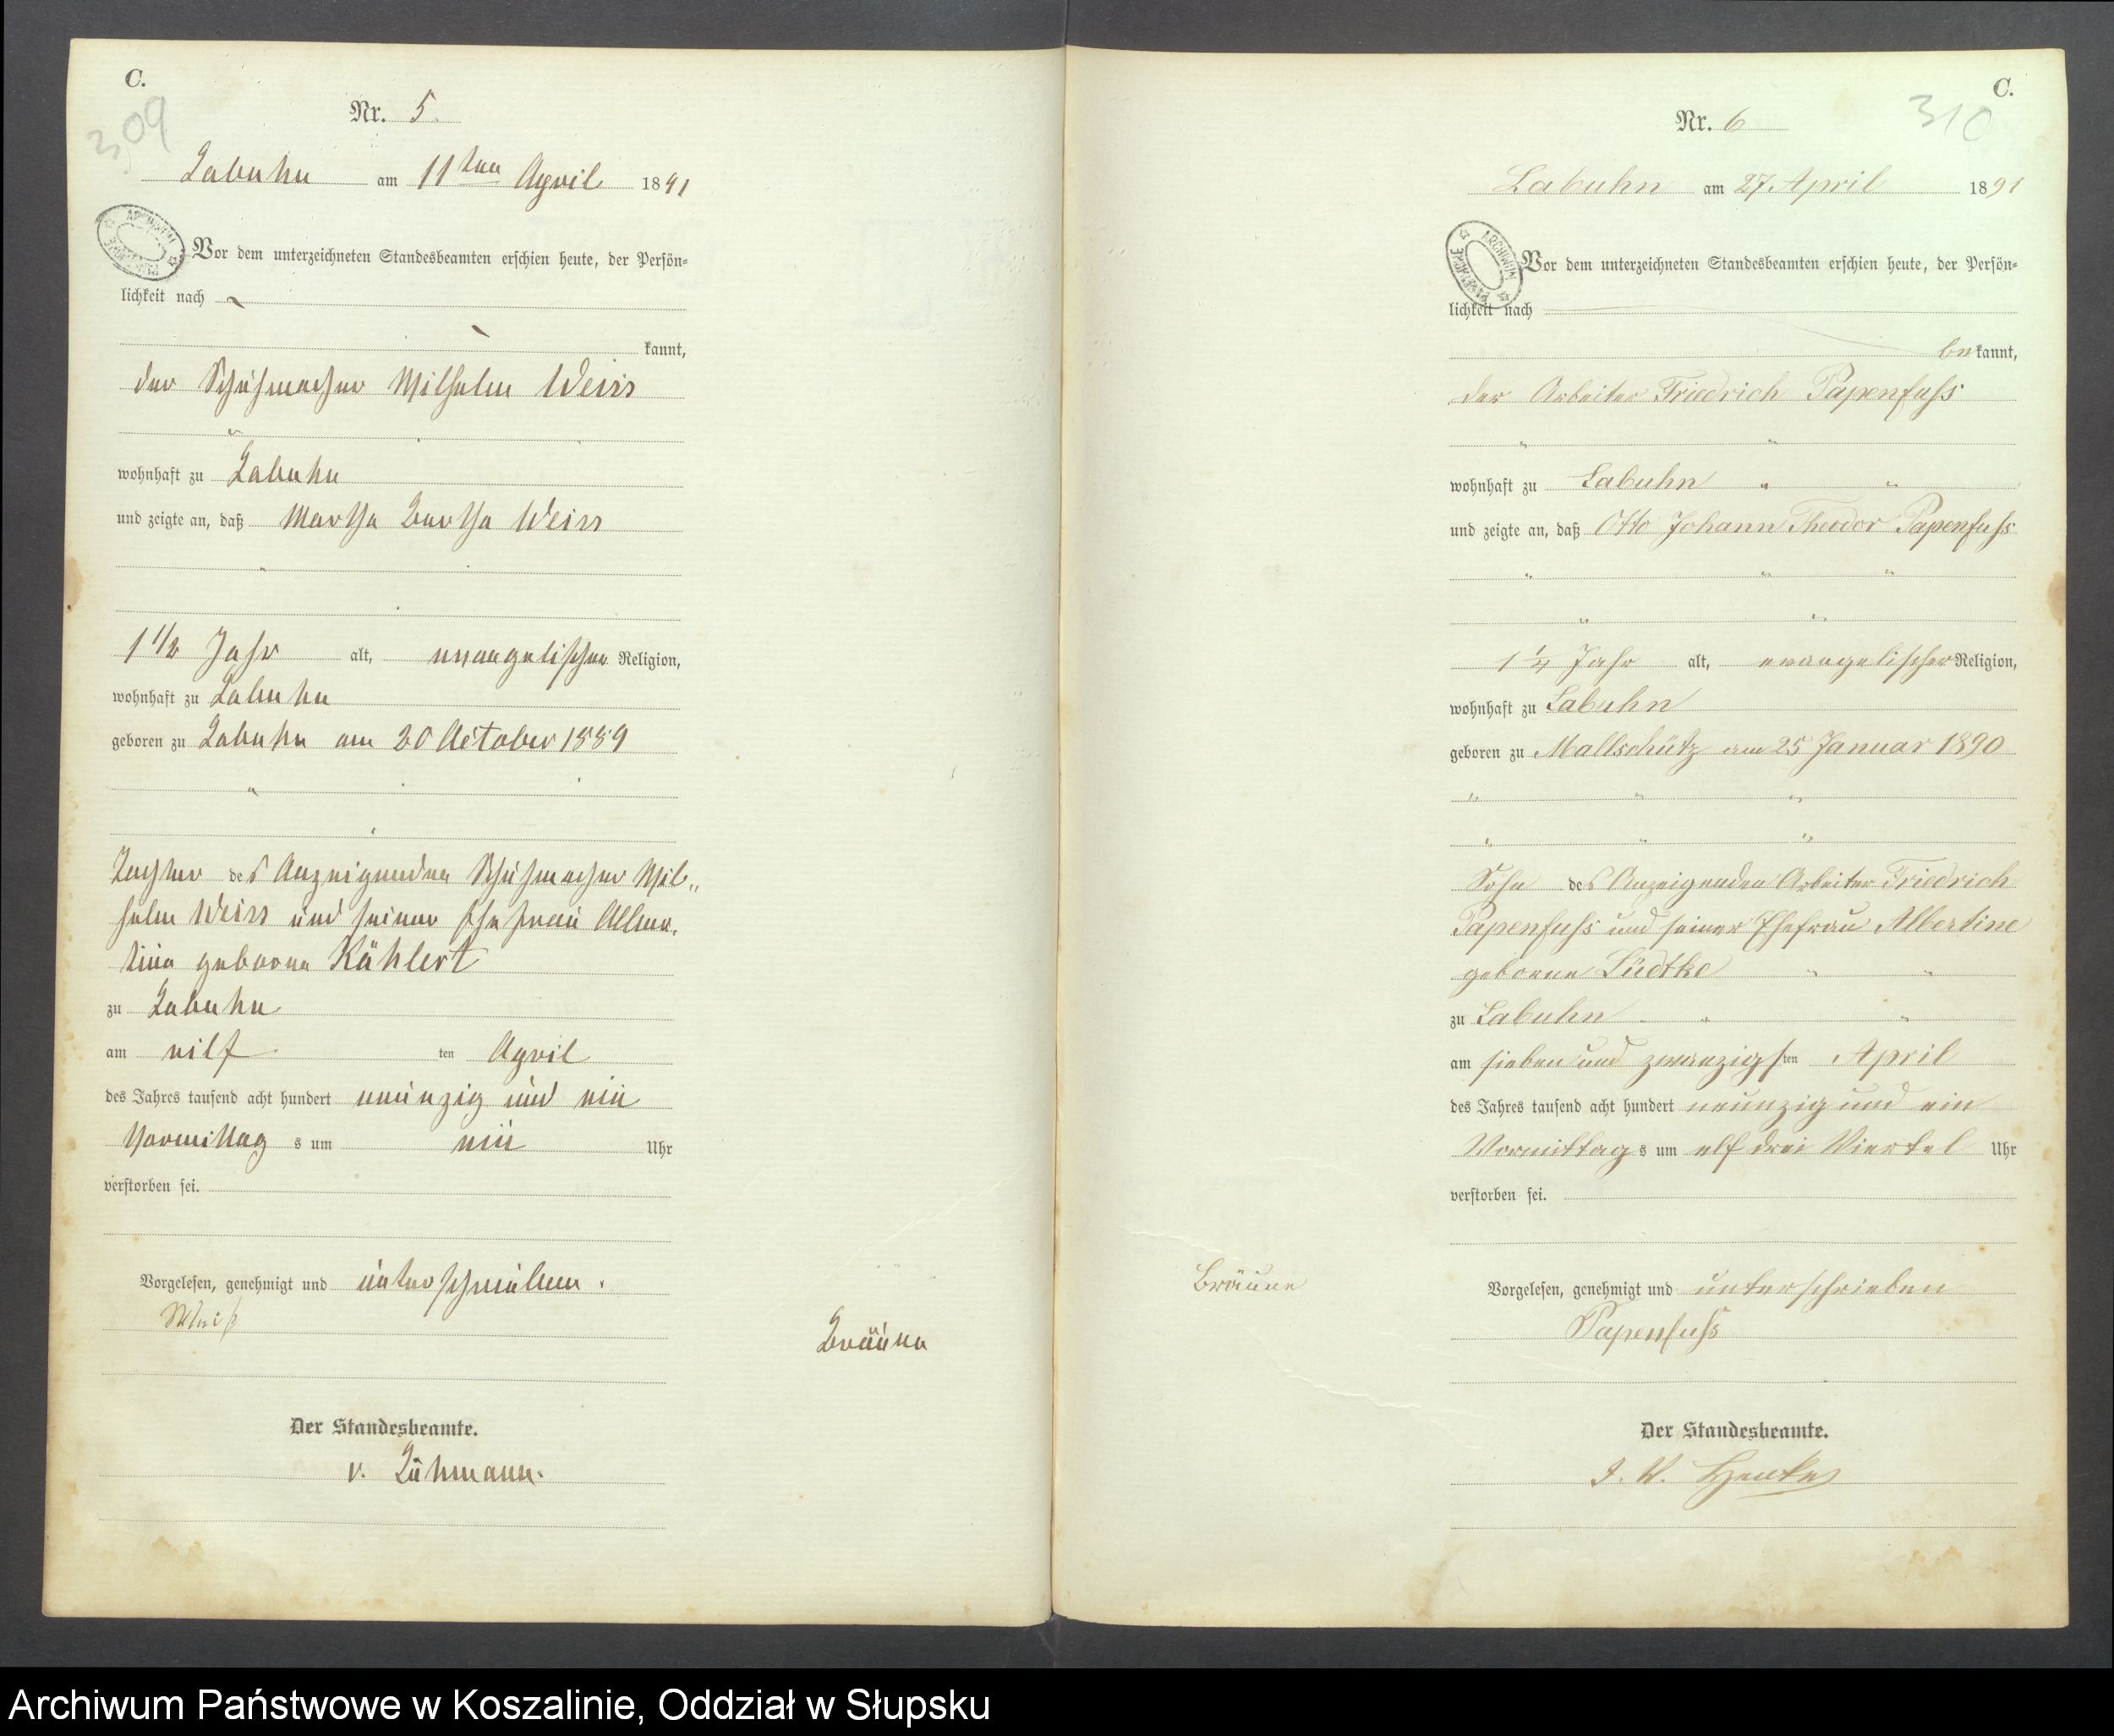 C.
309
Nr. 5.
Labuhn am 11ten April 1891
Vor dem unterzeichneten Standesbeamten erschien heute, der Persön-
lichkeit nach
kannt,
der Schuhmacher Wilhelm Weiss
wohnhaft zu Labuhn
und zeigte an, daß Martha Bertha Weiss
1 1/2 Jahr alt, evangelischer Religion,
wohnhaft zu Labuhn
geboren zu Labuhn am 20 October 1889
Tochter des Anzeigenden Schuhmacher Wil„
helm Weiss und seiner Ehefrau
geborene Kählert
zu Labuhn
am eilf ten April
des Jahres tausend acht hundert neunzig und ein
Vormittag s um ein Uhr
verstorben sei.
Vorgelesen, genehmigt und unterschrieben.
Weiß
Bräune
Der Standesbeamte.
v. Lühmann.
C.
310
Nr. 6
Labuhn am 27. April 1891
ARCHIWUM
Vor dem unterzeichneten Standesbeamten erschien heute, der Persön-
lichkeit nach
bekannt,
der Arbeiter Friedrich Papenfuss
wohnhaft zu Labuhn
und zeigte an, daß Otto Johann Theodor Papenfuss
1 1/4 Jahr alt, evangelischer Religion,
wohnhaft zu Labuhn
geboren zu Mallschütz am 25 Januar 1890
Sohn des Anzeigenden Arbeiter Friedrich
Papenfuss und seiner Ehefrau Albertine
geborene Lüdtke
zu Labuhn
am sieben und zwanzigsten April
des Jahres tausend acht hundert neunzig und ein
Vormittag s um elf drei Viertel Uhr
verstorben sei.
Bräune
Vorgelesen, genehmigt und unterschrieben
Papenfuss
Der Standesbeamte.
I. V. Henke
Archiwum Państwowe w Koszalinie, Oddział w Słupsku